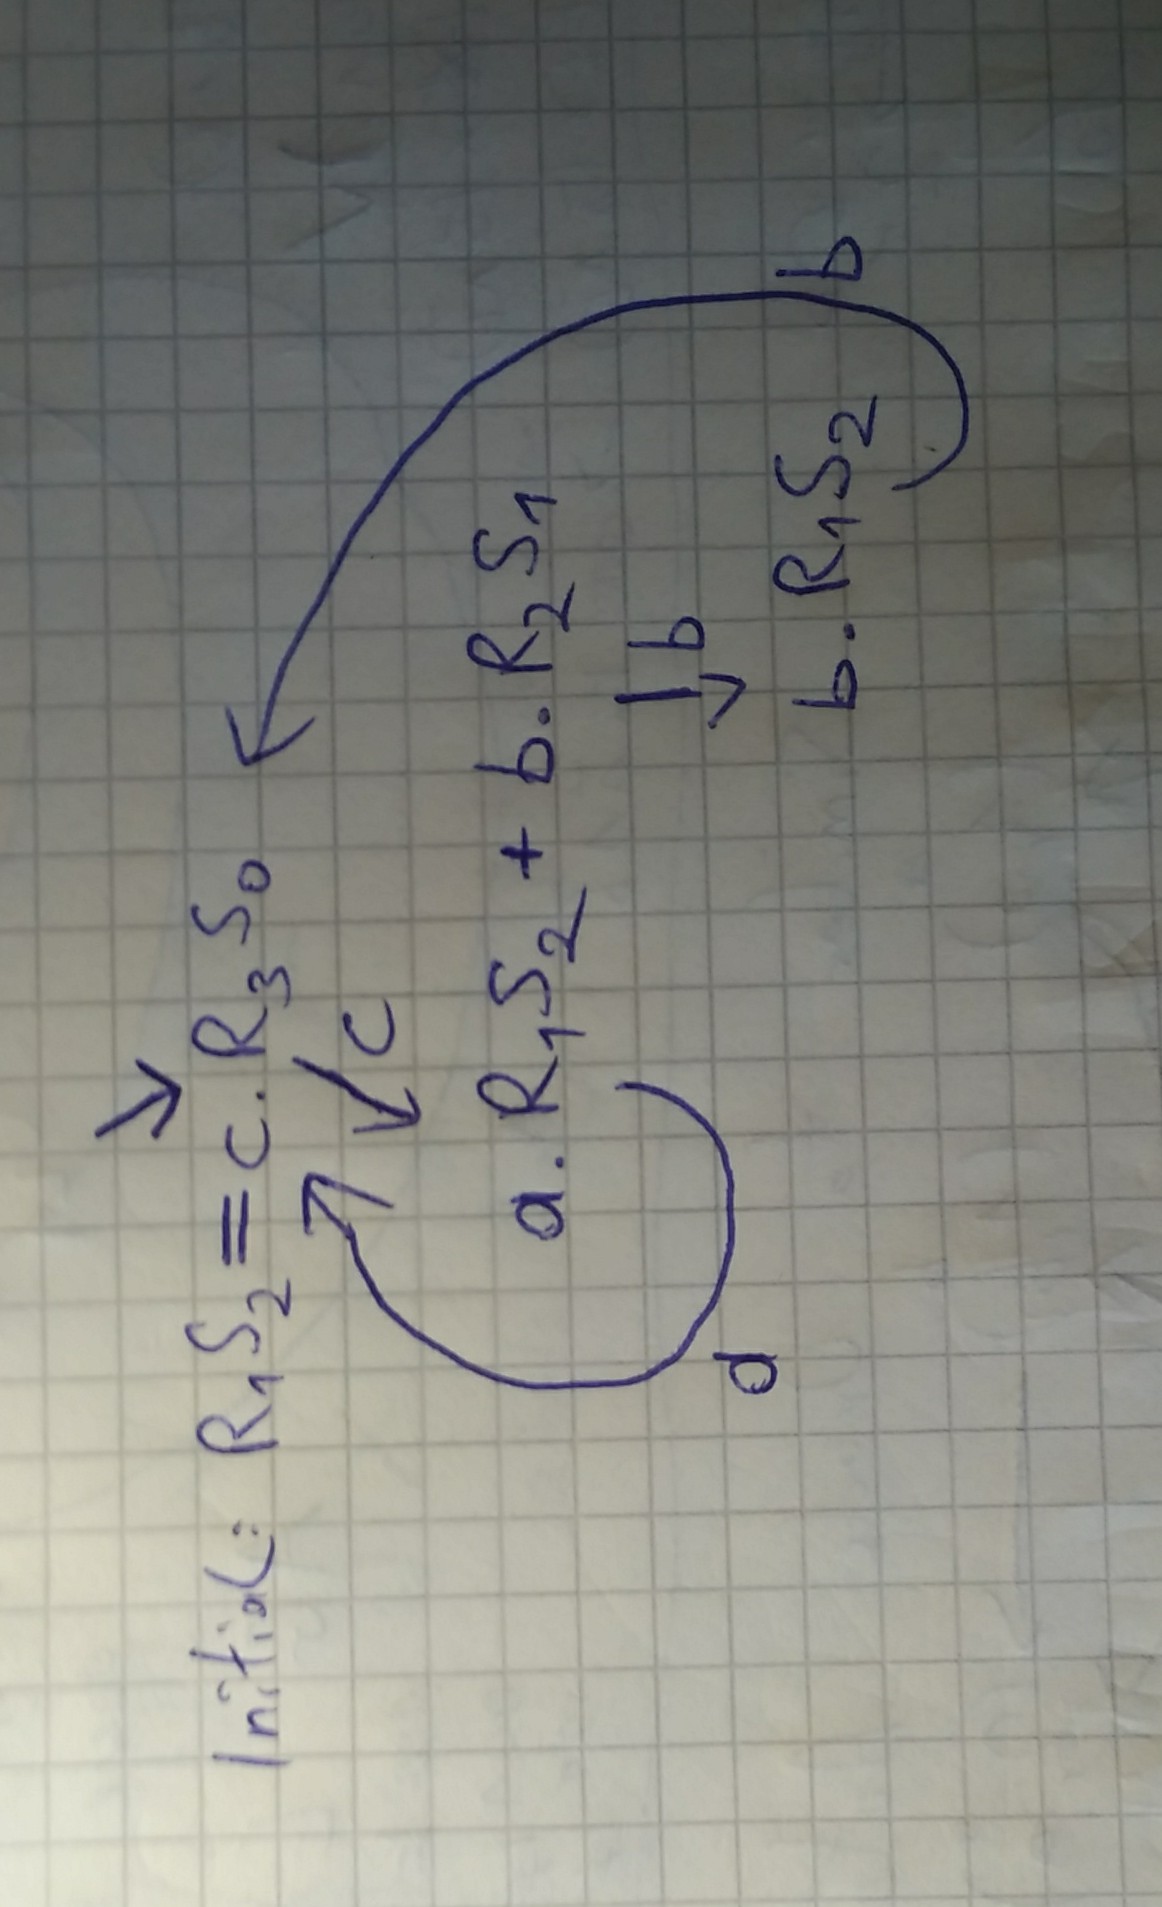 Initial: R₁S₂ = c. R₃S₀
c
a. R₁S₂ + b. R₂S₁
d
b
b. R₁S₂
b